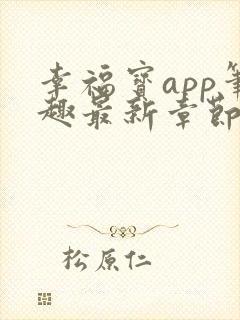 幸福寶app筆
趣最新章節
松原仁